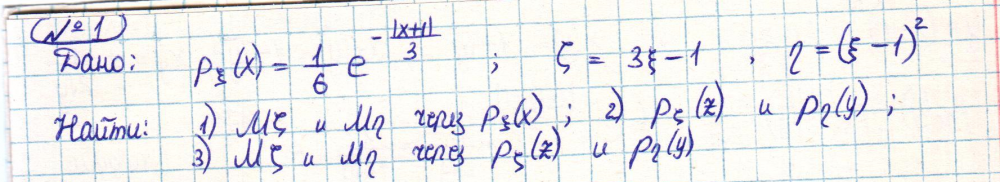 №1
Дано: p_ξ(x) = 1/6 e^(-|x+1|/3) ; ζ = 3ξ-1 , η = (ξ-1)²
Найти: 1) Mζ и Mη через p_ξ(x) ; 2) p_ζ(z) и p_η(y) ;
3) Mζ и Mη через p_ζ(z) и p_η(y)